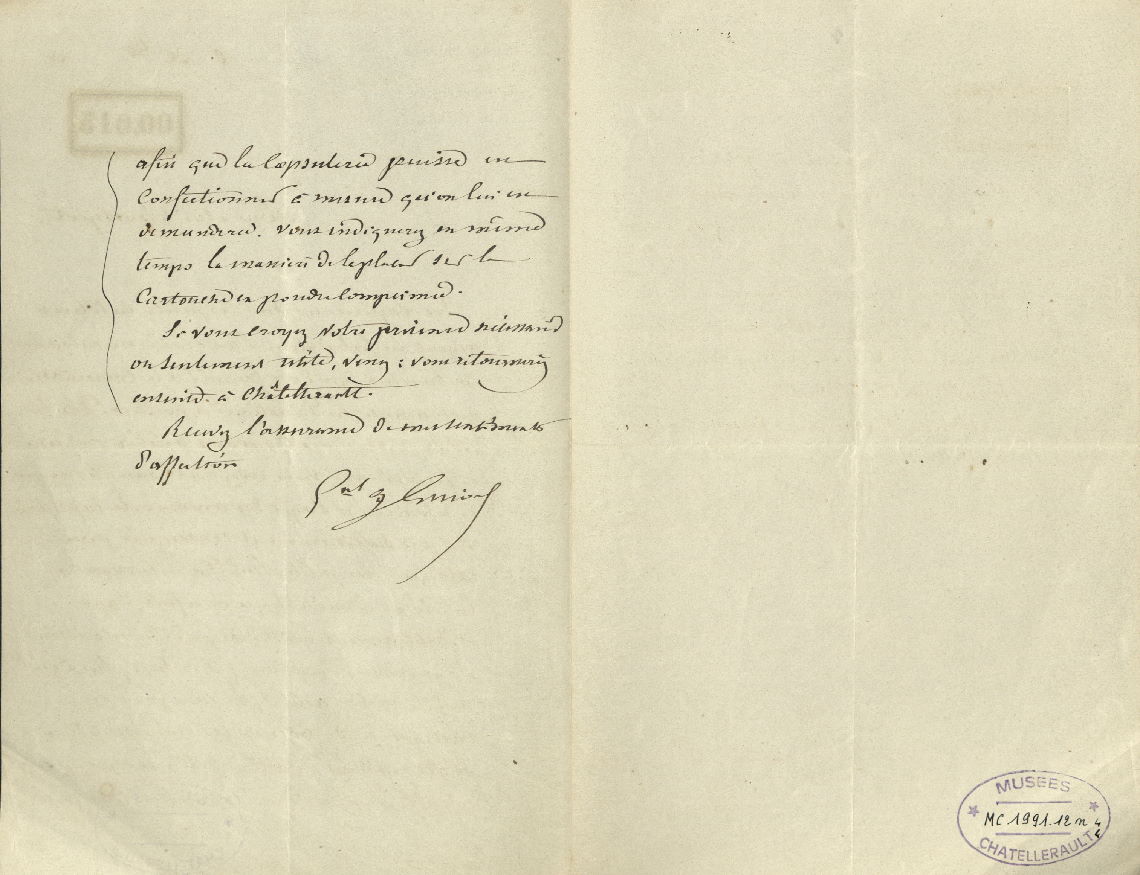 afin que la Capsulerie puisse en
Confectionner à mesure qu'on lui en
demandera. Vous indiquerez en même
temps la manière de le placer sur la
Cartouche en poudre comprimée.
Si vous croyez votre présence nécessaire
ou seulement utile, venez : vous retournerez
ensuite à Châtellerault.
Recevez l'assurance de mes sentiments
d'affection
Gal
MUSEES
MC 1991.12 n
CHATELLERAULT